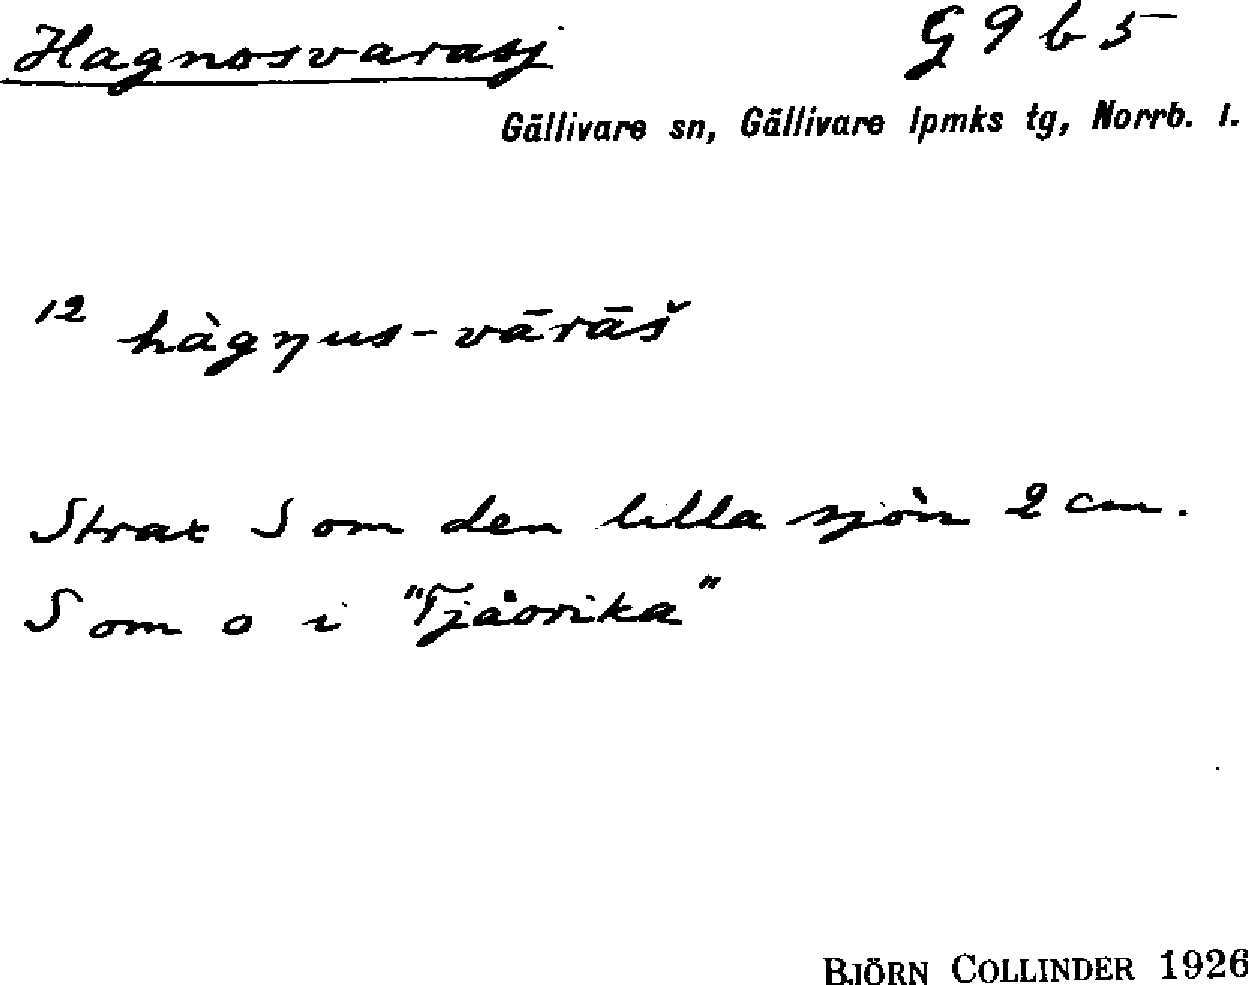 Hagnosvarasj G 9 b 5
Gällivare sn, Gällivare lpmks tg, Norrb. l.
12 hàgŋus-vārāš
Strax S om den lilla sjön 2 cm.
S om o i "Tjåorika"
BJÖRN COLLINDER 1926